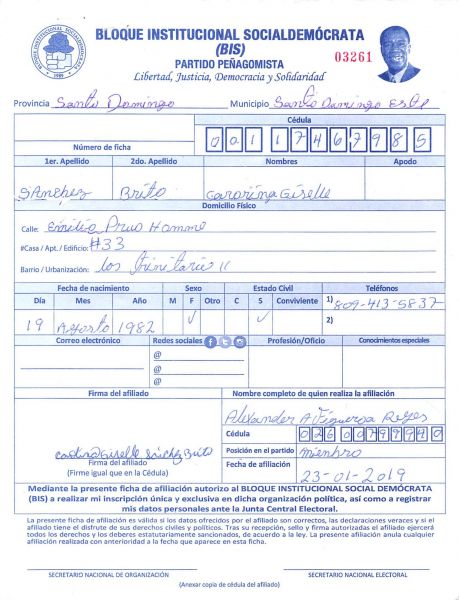 BLOQUE INSTITUCIONAL SOCIALDEMÓCRATA
(BIS)
PARTIDO PEÑAGOMISTA
Libertad, Justicia, Democracia y Solidaridad
03261
Provincia Santo Domingo Municipio Santo Domingo Este
Cédula
Número de ficha 00117467985
1er. Apellido 2do. Apellido Nombres Apodo
Sánchez Brito Giselle
Domicilio Físico
Calle: Emilio Prud Homme
#Casa / Apt. / Edificio: #33
Barrio / Urbanización: los trinitario II
Fecha de nacimiento Sexo Estado Civil Teléfonos
Día Mes Año M F Otro C S Conviviente 1) 809-413-5837
19 Agosto 1982 2)
Correo electrónico Redes sociales Profesión/Oficio Conocimientos especiales
@
@
@
Firma del afiliado Nombre completo de quien realiza la afiliación
Alexander A Figueroa Reyes
Cédula 02600799940
Giselle Sánchez Brito
Posición en el partido miembro
Firma del afiliado
(Firme igual que en la Cédula)
Fecha de afiliación 23-01-2019
Mediante la presente ficha de afiliación autorizo al BLOQUE INSTITUCIONAL SOCIAL DEMÓCRATA
(BIS) a realizar mi inscripción única y exclusiva en dicha organización política, así como a registrar
mis datos personales ante la Junta Central Electoral.
La presente ficha de afiliación es válida si los datos ofrecidos por el afiliado son correctos, las declaraciones veraces y si el
afiliado tiene el disfrute de sus derechos civiles y políticos. Tras su recepción, sello y firma autorizadas el afiliado ejercerá
todos los derechos y los deberes estatutariamente sancionados, de acuerdo a la ley. La presente afiliación anula cualquier
afiliación realizada con anterioridad a la fecha que aparece en esta ficha.
SECRETARIO NACIONAL DE ORGANIZACIÓN SECRETARIO NACIONAL ELECTORAL
(Anexar copia de cédula del afiliado)